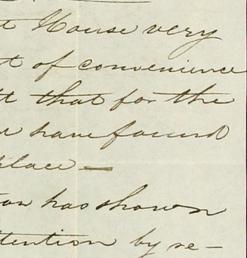 House very
t of convenience
that for the
have found
place —
has shown
ttention by re–